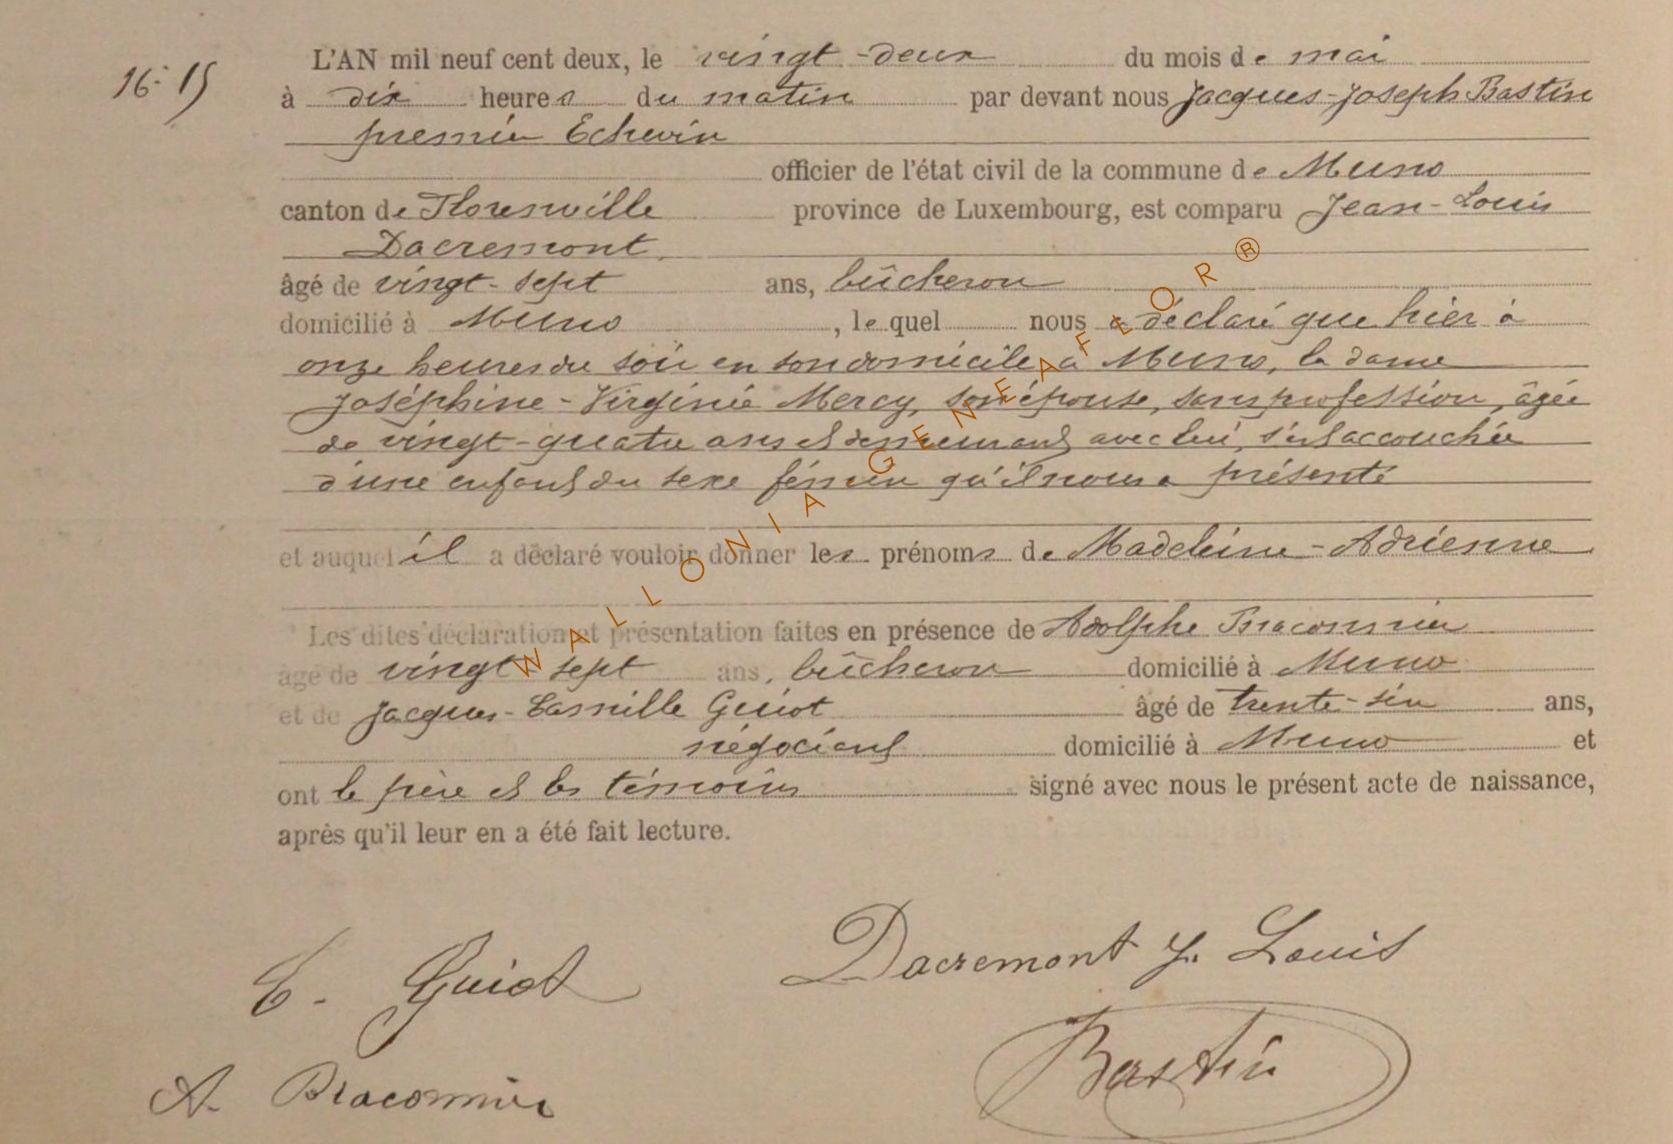 16-15
L'AN mil neuf cent deux, le vingt-deux du mois de mai
à dix heures du matin par devant nous Jacques-Joseph Bastin
premier Echevin
officier de l'état civil de la commune de Muno
canton de Florenville province de Luxembourg, est comparu Jean-Louis
Dacremont,
âgé de vingt-sept ans, bûcheron
domicilié à Muno, lequel nous a déclaré que hier à
onze heures du soir en son domicile à Muno, la dame
Joséphine-Virginie Mercy, son épouse, sans profession, âgée
de vingt-quatre ans et demeurant avec lui, s'est accouchée
d'une enfant du sexe féminin qu'il nous a présenté
et auquel il a déclaré vouloir donner les prénoms de Madeleine-Adrienne
Les dites déclaration et présentation faites en présence de Adolphe Braconnier
âgé de vingt sept ans, bûcheron domicilié à Muno
et de Jacques-Camille Guiot âgé de trente-six ans,
négociant domicilié à Muno et
ont le père et les témoins signé avec nous le présent acte de naissance,
après qu'il leur en a été fait lecture.
C. Guiot
Dacremont J. Louis
A. Braconnier
Bastin
WALLONIA GENEAFLOR®